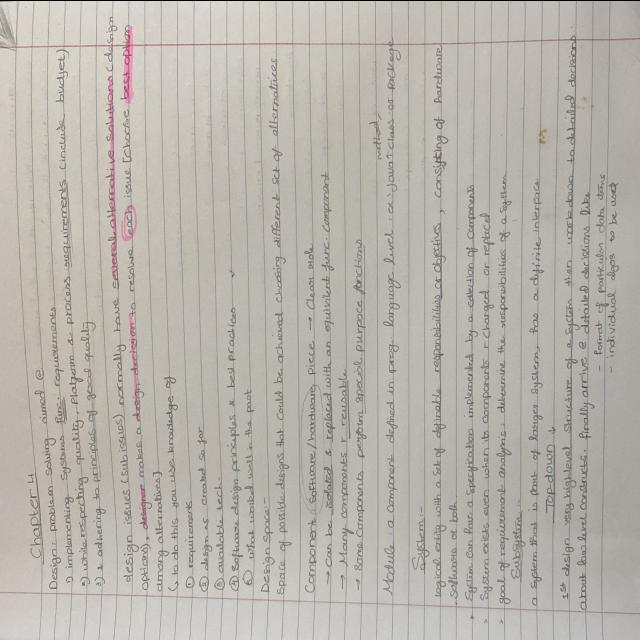 Chapter 4
Design: problem solving aimed @
1) implementing systems func. requirements
2) while respecting quality, Platform & process requirements (include budget)
3) & adhering to principles of good quality
design issues (sub issues) normally have several alternative solutions (design
options), designer makes a design decision to resolve each issue [choose best option
among alternatives]
↳ to do this you use knowledge of
① requirements
② design as created so far
③ available tech.
④ Software design principles & best practices
⑤ what worked well in the past
Design Space:-
Space of possible designs that could be achieved choosing different set of alternatives
Component: Software/hardware piece → Clear role
→ Can be isolated & replaced with an equivalent func. component
→ Many components r reusable
→ Some Components perform special purpose functions
Module: a component defined in prog. language level; ex java: method, class or package
System:-
logical entity with a set of definable responsibilities or objectives, consisting of hardware
software or both
System can have a specification implemented by a collection of components
System exists even when its components r changed or replaced
goal of requirement analysis: determine the responsibilities of a system
Subsystem
a system that is part of larger system, has a definite interface
Top down ↓
1st design very high level structure of a system then work down to detailed decisions
about low level constructs, finally arrive @ detailed decisions like
- Format of particular data items
- individual algos to be used